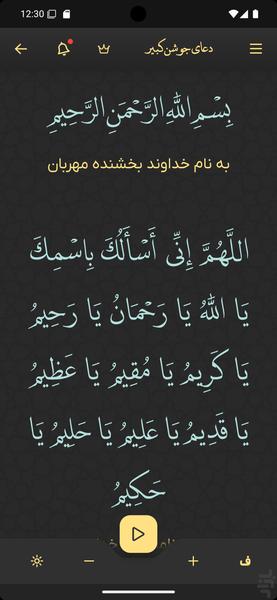 12:30
دعای جوشن کبیر
بِسْمِ اللَّهِ الرَّحْمَنِ الرَّحِيمِ
به نام خداوند بخشنده مهربان
اللَّهُمَّ إِنِّي أَسْأَلُكَ بِاسْمِكَ
يَا اللَّهُ يَا رَحْمَانُ يَا رَحِيمُ
يَا كَرِيمُ يَا مُقِيمُ يَا عَظِيمُ
يَا قَدِيمُ يَا عَلِيمُ يَا حَلِيمُ يَا
حَكِيمُ
ف
بازار